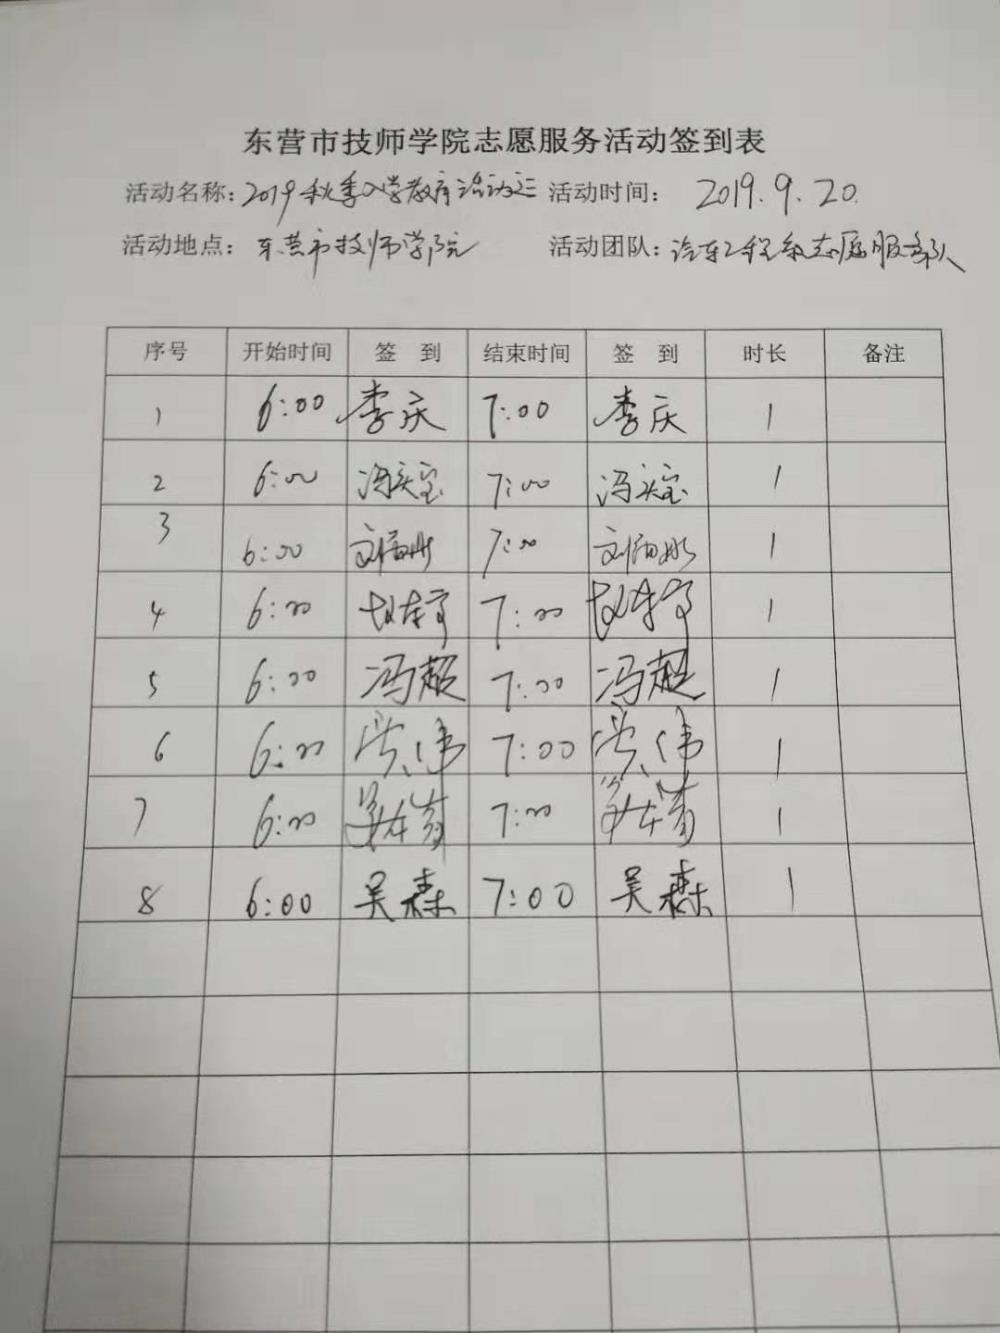 东营市技师学院志愿服务活动签到表
活动名称：2019秋季入学教育活动 活动时间： 2019.9.20.
活动地点： 东营市技师学院 活动团队：汽车工程系志愿服务队
序号 开始时间 签 到 结束时间 签 到 时长 备注
1 6:00 李庆 7:00 李庆 1
2 6:00 7:00 1
3 6:00 7:00 1
4 6:00 7:00 1
5 6:00 冯超 7:00 冯超 1
6 6:00 7:00 1
7 6:00 7:00 1
8 6:00 吴森 7:00 吴森 1